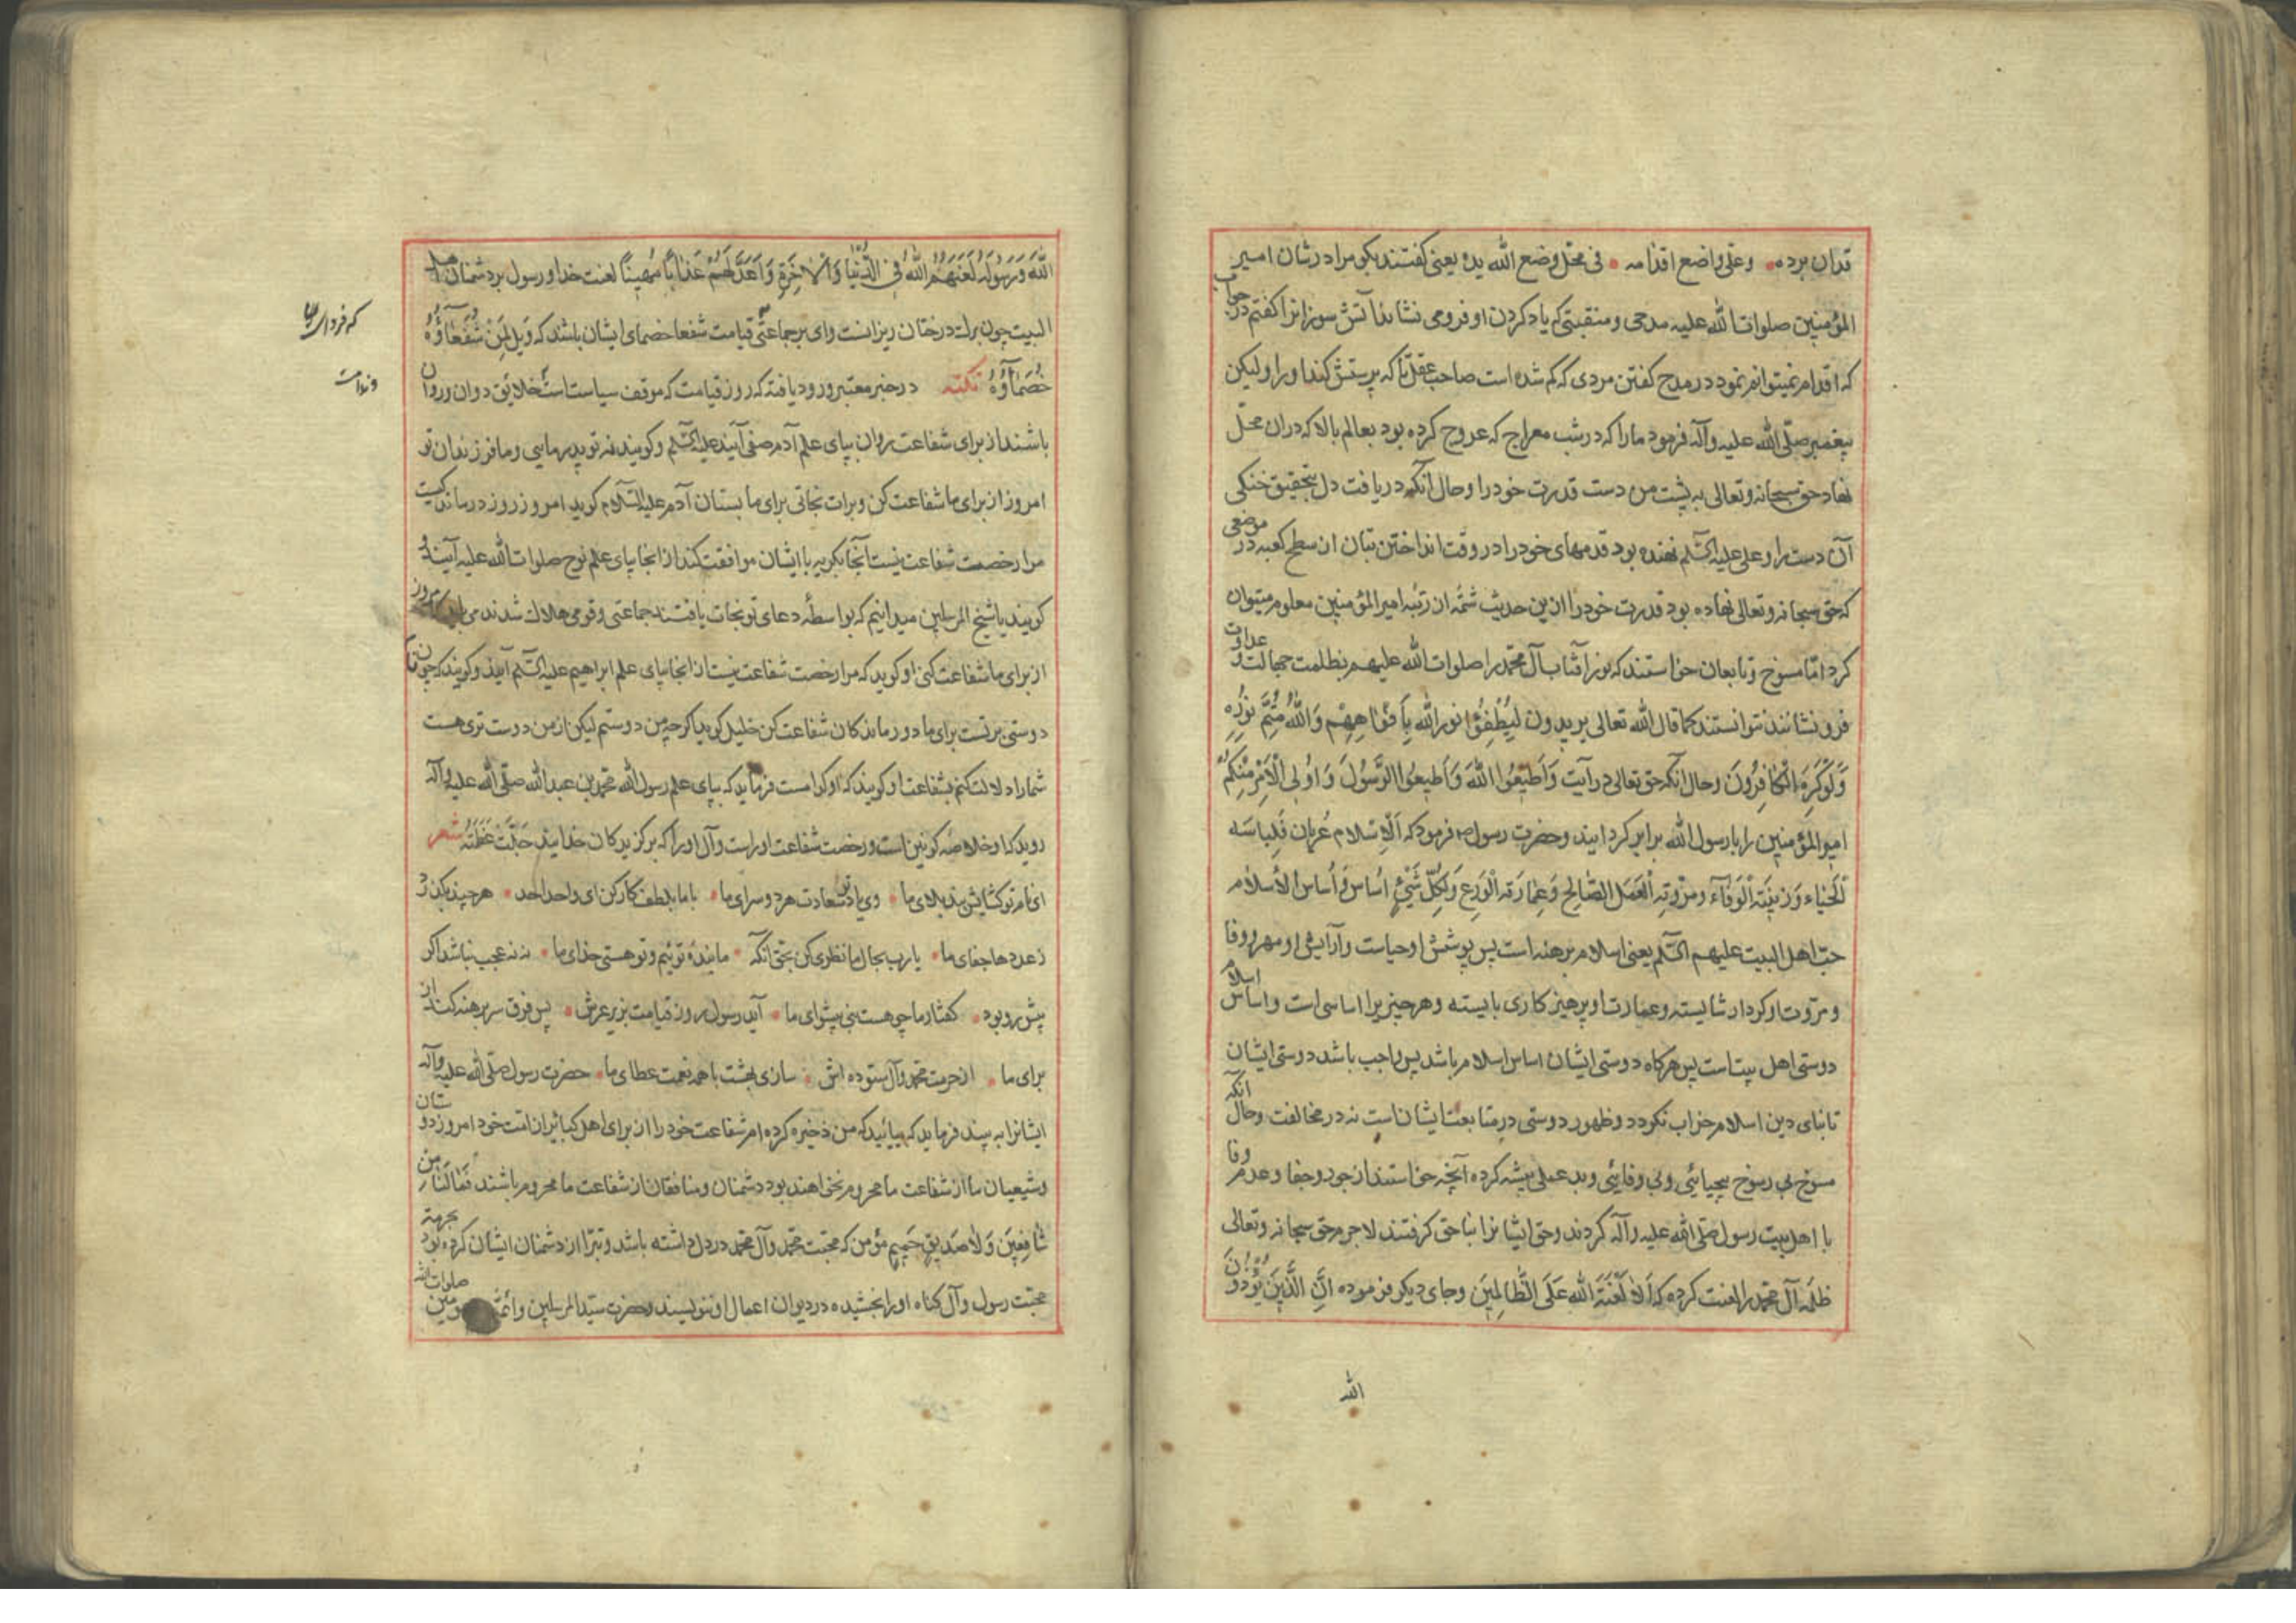 قدان برده وعلی واضع اقدامه فی محل وضع الله یده یعنی کفتند بکو مرا در شان امیر
المؤمنین صلوات الله علیه مدحی و منقبتی که یاد کردن او فرو می نشاند آتش سوزانرا کفتم در جواب
که اقدام نمیتوانم نمود در مدح کفتن مردی که کم شده است صاحب عقل تا که پرستش کند او را ولیکن
پیغمبر صلّی الله علیه وآله فرمود ما را که در شب معراج که عروج کرده بود بعالم بالا که دران محلّ
نهاد حق سبحانه وتعالی به پشت من دست قدرت خود را وحال آنکه دریافت دل بتحقیق خنکی
آن دست را وعلی علیه السّلم نهنده بود قدمهای خود را در وقت انداختن بتان از سطح کعبه در موضعی
که حق سبحانه وتعالی نهاده بود قدرت خود را ازین حدیث شمّه از رتبه امیر المؤمنین معلوم میتوان
کرد امّا مسوخ و تابعان خواستند که نور آفتاب آل محمّد را صلوات الله علیهم بظلمت جهالت و عداوت
فرو نشانند نتوانستند کما قال الله تعالی یریدون لِیُطْفِؤُا نور الله بِاَفْوٰاهِهِمْ وَاللّٰهُ مُتِمُّ نُورِهِ
وَلَوْ کَرِهَ الْکٰافِرُونَ وحال آنکه حق تعالی در آیت وَاَطیعُوا اللّٰهَ وَاَطیعُوا الرَّسُولَ وَاُولِی الْاَمْرِ مِنْکُمْ
امیر المؤمنین را با رسول الله برابر کردانید وحضرت رسول فرمود که اَلْاِسْلام عُریان فَلِباسه
اَلْحَیٰاء وَزینَته الْوَفٰاء ومروّته الْعَمَل الصّٰالِح وَعِمٰارَته الْوَرَع وَلِکُلِّ شَیْئٍ اَسٰاس وَاَسٰاس الْاِسْلام
حبّ اهل البیت علیهم السّلم یعنی اسلام برهنه است پس پوشش او حیاست وآرایش او مهر و وفا
و مروّت او کردار شایسته وعمارت او پرهیزکاری بایسته وهر چیزیرا اساسی است واساس اسلام
دوستی اهل بیت است پس هرکاه دوستی ایشان اساس اسلام باشد پس واجب باشد دوستی ایشان
تا بنای دین اسلام خراب نکردد وظهور دوستی در متابعت ایشان است نه در مخالفت وحال آنکه
مسوخ بی رسوخ بیحیائی وبی وفایئی وبد عملی پیشه کرده آنچه خواستند از جور وجفا وعدم وفا
با اهل بیت رسول صلّی الله علیه وآله کردند وحق ایشانرا بناحق کرفتند لاجرم حق سبحانه وتعالی
ظلمه آل محمّد را لعنت کرده که اَلٰا لَعْنَةُ اللّٰهِ عَلَی الظّٰالِمینَ وجای دیکر فرموده اِنَّ الَّذینَ یُؤْذُونَ
الله
اللّٰهَ وَرَسُولَهُ لَعَنَهُمُ اللّٰهُ فِی الدُّنْیٰا وَالْاٰخِرَةِ وَاَعَدَّ لَهُمْ عَذٰاباً مُهیناً لعنت خدا ورسول بر دشمنان اهل
البیت چون برک درختان ریزانست وای بر جماعتی قیامت شفعا خصمای ایشان باشند که وَیْل لِمَنْ شُفَعٰاؤُهُ
که فردای
خُصَمٰاؤُهُ نکته در خبر معتبر ورود یافته که روز قیامت که موقف سیاست است خلائق دوان و روان
وندامت
باشند از برای شفاعت روان بپای علم آدم صفی آیند علیه السّلم وکویند نه تو پدر مایی وما فرزندان تو
امروز از برای ما شفاعت کن وبرات نجاتی برای ما بستان آدم علیه السّلام کوید امروز روز درماندکیست
مرا رخصت شفاعت نیست آنجا بکریه با ایشان موافقت کند از انجا بپای علم نوح صلوات الله علیه آیند و
کویند یا شیخ المرسلین میدانیم که بواسطهٔ دعای تو نجات یافتند جماعتی وقومی هلاک شدند می باید که امروز
از برای ما شفاعت کنی او کوید که مرا رخصت شفاعت نیست از انجا بپای علم ابراهیم علیه السّلم آیند وکویند که چون تاج
دوستی بر تست برای ما دور ماندکان شفاعت کن خلیل کوید اکرچه من دوستم لیکن از من دوست تری هست
شما را دلالت کنم بشفاعت او کویند که او کدامست فرماید که بپای علم رسول الله محمّد بن عبد الله صلّی الله علیه وآله
روید که او خلاصهٔ کونین است ورخصت شفاعت او راست وآل او را که برکزیدکان خدایند جَلَّتْ عَظَمَتُهُ شعر
ای نام تو کشایش بند بلای ما وی یاد تو سعادت هر دو سرای ما با ما بلطف کار کن ای واحد احد هر چند بکذرد
ز عدد ها جفای ما یا رب بحال ما نظری کن بحق آنکه ما بندهٔ توئیم وتو هستی خدای ما نه نه عجب نباشد اکر
پیش رو بود کفتار ما چو هست نبی پیشوای ما آید رسول روز قیامت بزیر عرش پس فرق سر برهنه کند از
برای ما از حرمت محمّد وآل ستوده اش سازی بهشت با همه نعمت عطای ما حضرت رسول صلّی الله علیه وآله
ایشانرا به بیند فرماید که بیائید که من ذخیره کرده ام شفاعت خود را از برای اهل کبائر از امّت خود امروز دوستان
وشیعیان ما از شفاعت ما محروم نخواهند بود دشمنان ومنافقان از شفاعت ما محروم باشند فَمٰا لَنٰا مِنْ
شٰافِعینَ وَلٰا صَدیقٍ حَمیمٍ مؤمن که محبّت محمّد وآل محمّد در دل داشته باشد وتبرّا از دشمنان ایشان کرده بود بجهة
محبّت رسول وآل کناه او را بخشیده در دیوان اعمال او ننویسند وحضرت سیّد المرسلین وائمّه صلوات الله